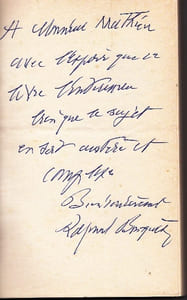 A Monsieur Mathieu
avec l'espoir que ce
livre l'intéressera
bien que le sujet
en soit austère et
complexe
Bien sincèrement
Raymond